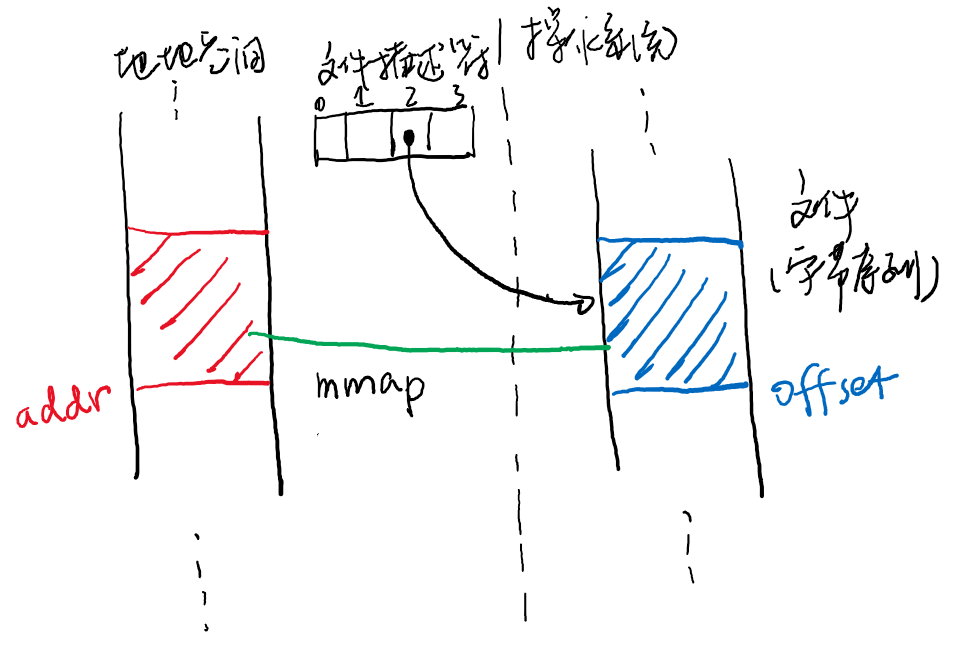 地址空间
文件描述符
操作系统
0 1 2 3
文件
(字节序列)
addr
mmap
offset